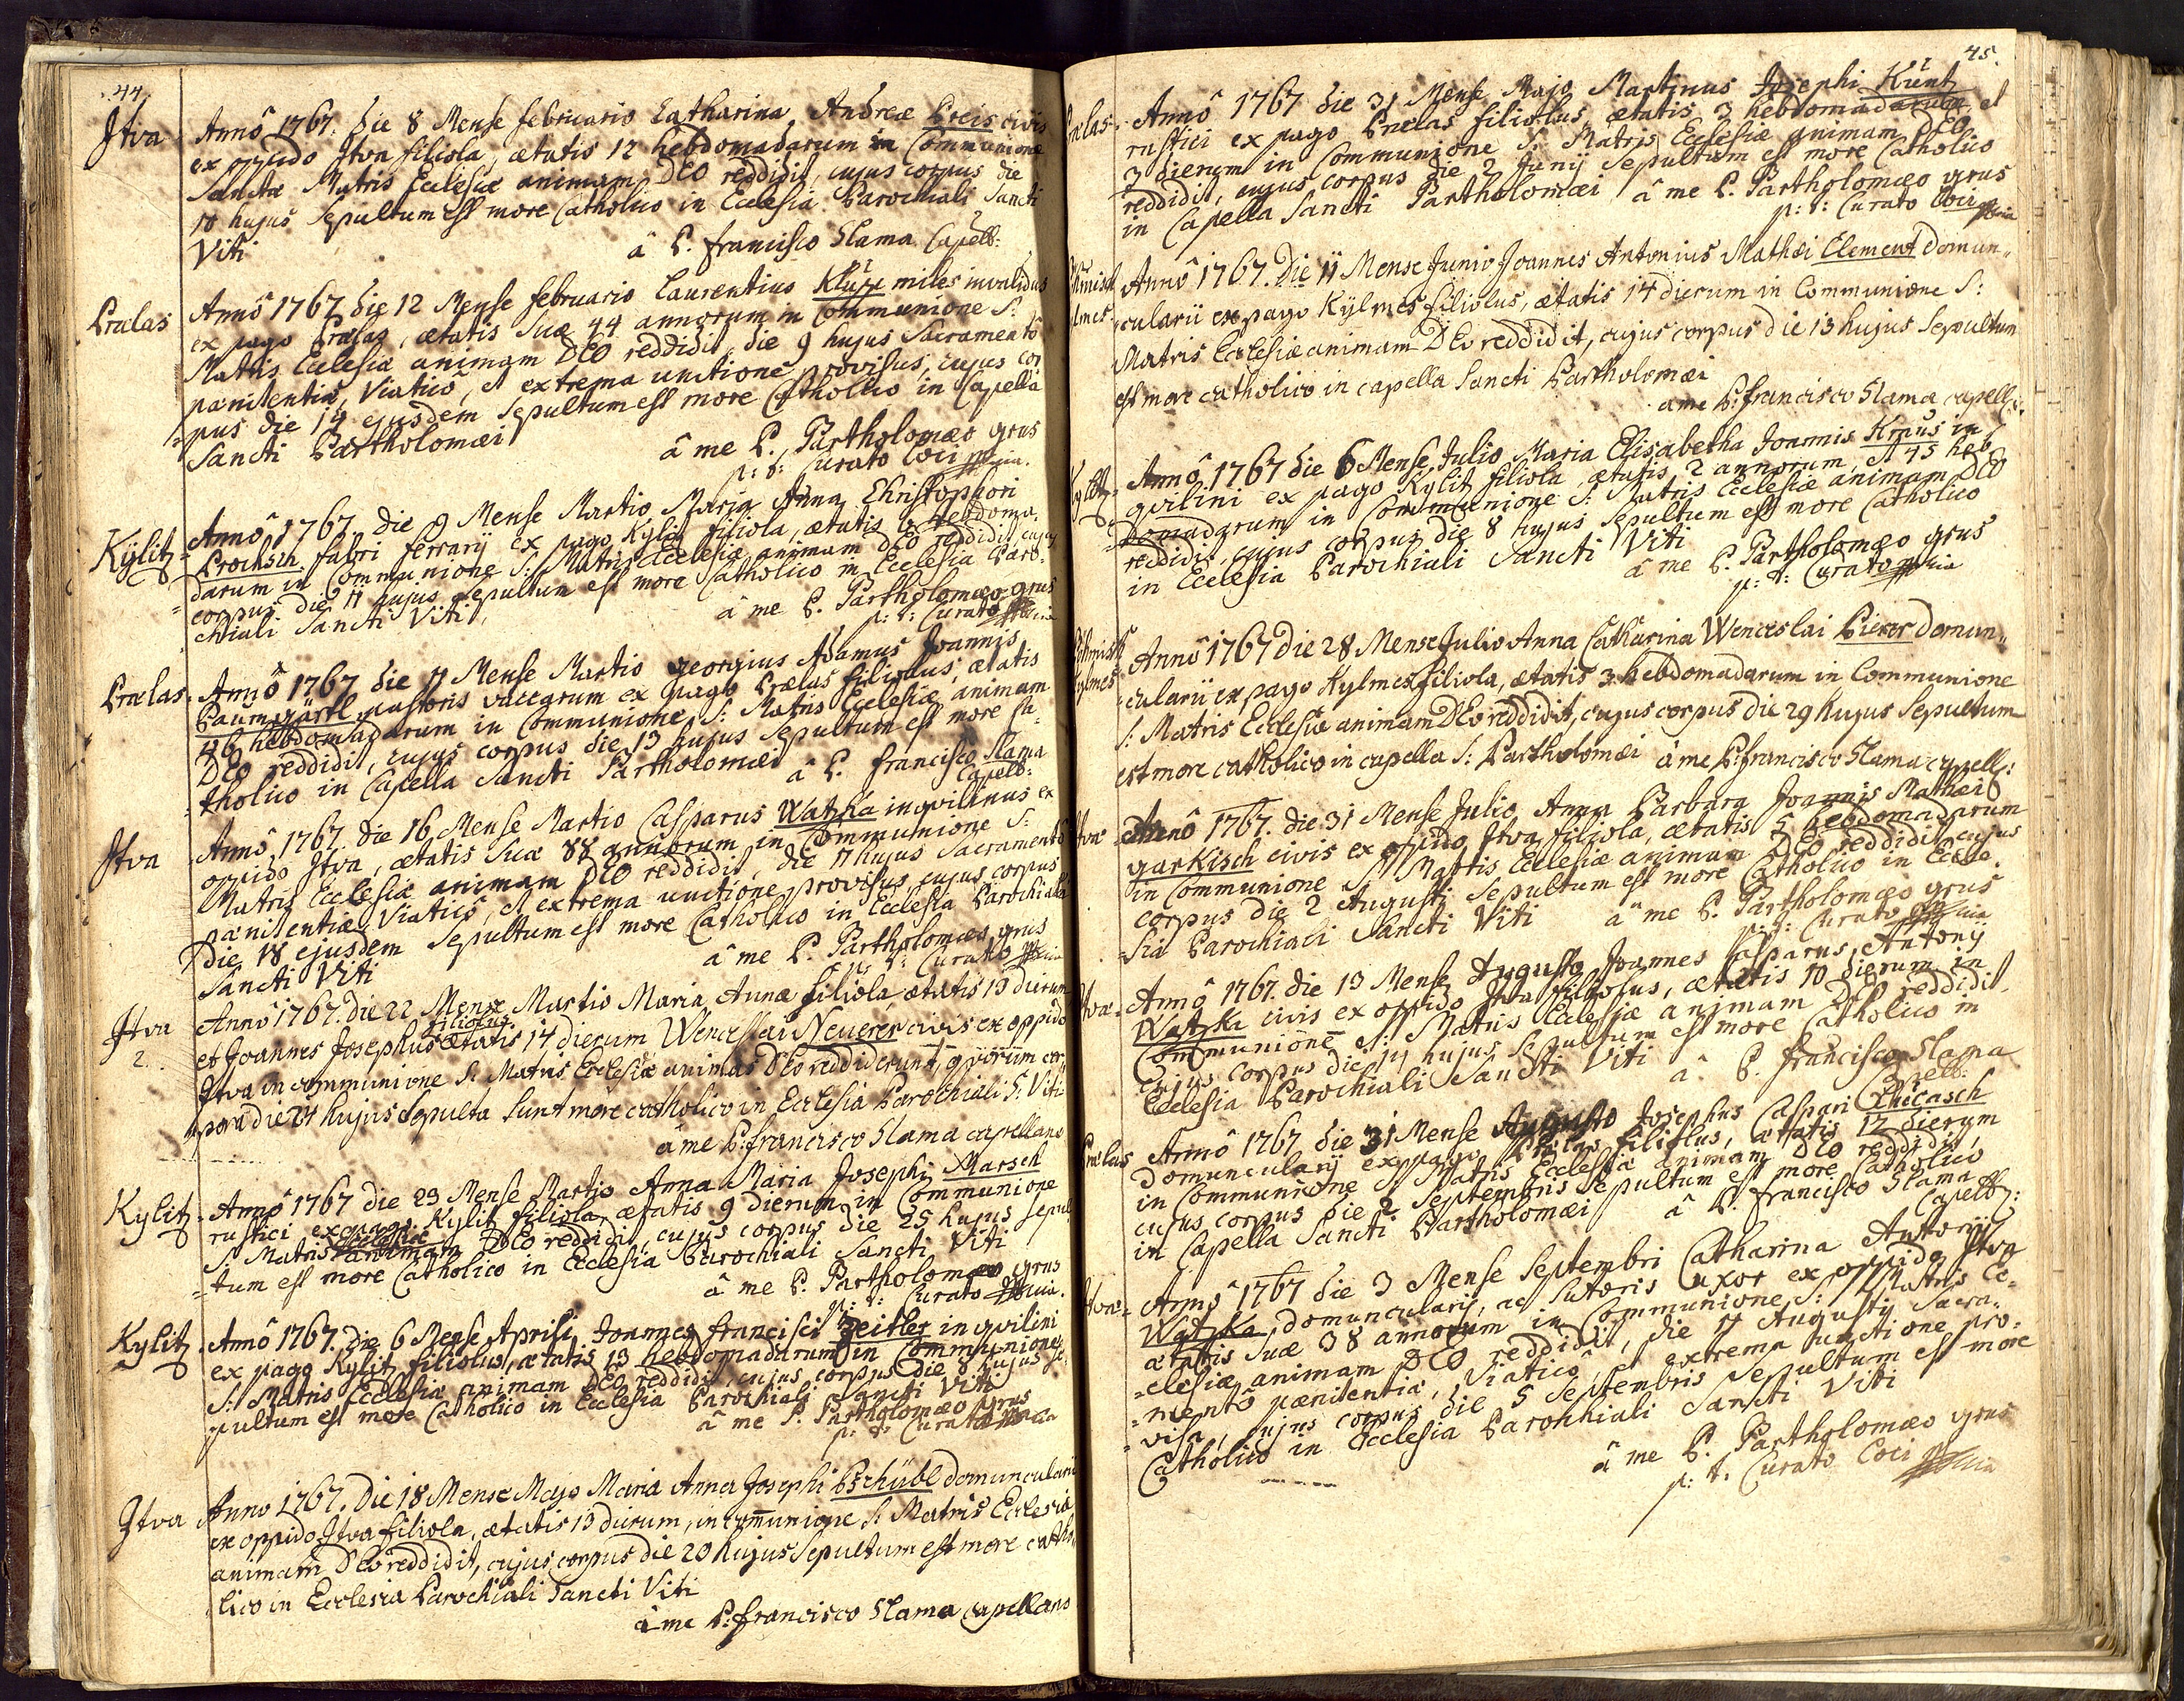 44.
Jtva
Annô 1767. die 8 Mense februario Catharina, Andreæ Preis civis
ex oppido Jtva filiola, ætatis 12 hebdomadarum in Communione
Sanctæ Matris Ecclesiæ animam DEO reddidit, cujus corpus die
10 hujus Sepultum est more Catholico in Ecclesia Parochiali Sancti
Viti
â P. francisco Slama Capell:
Prælas
Annô 1767 die 12 Mense februario Laurentius miles invalidus
ex pago Prælas, ætatis Suæ 44 annorum in Communione S:
Matris Ecclesiæ animam DEO reddidit, die 9 hujus Sacramentô
pænitentiæ, Viaticô, et extrema unctione provisus, cujus cor
=pus die 14 ejusdem Sepultum est more Catholico in Capella
Sancti Bartholomæi
â me P. Bartholomæo grus
p: t: Curato Loci
Kÿlitz
Annô 1767 die 9 Mense Martio Maria Anna Christophori
Prochsch fabri ferrarij ex pago Kylitz filiola, ætatis 6 hebdoma
=darum in Communione S: Matris Ecclesiæ animam DEO reddidit, cujus
corpus die 11 hujus Sepultum est more Catholico in Ecclesia Paro=
chiali Sancti Viti,
â me P. Bartholomæo grus
p: t: Curato
Prælas
Annô 1767 die 11 Mense Martio georgius Adamus Joannis
Baumgärtl pastoris vaccarum ex pago Prælas filiolus, ætatis
46 hebdomadarum in Communione S: Matris Ecclesiæ animam
DEO reddidit, cujus corpus die 13 hujus Sepultum est more Ca=
=tholico in Capella Sancti Bartholomæi
â P. francisco Slama
Capell:
Jtva
Annô 1767. die 16 Mense Martio Casparus Watzka inqvilinus ex
oppido Jtva, ætatis Suæ 88 annorum in Communione S:
Matris Ecclesiæ animam DEO reddidit, die 11 hujus Sacramentô
pænitentiæ, Viaticô, et extrema unctione provisus cujus corpus
die 18 ejusdem Sepultum est more Catholico in Ecclesia Parochiali
Sancti Viti
â me P. Bartholomæo grus
p: t: Curato
Jtva
2.
Annô 1767. die 22 Mense Martio Maria Anna filiola ætatis 13 dierum
filiolus
et Joannes Josephus ætatis 14 dierum Wenceslai Neuerer civis ex oppido
Jtva in communione S: Matris Ecclesiæ animas DEo reddiderunt, qvorum cor
pora die 24 hujus Sepulta Sunt more catholico in Ecclesia Parochiali S: Viti
âme P: francisco Slama capellano
Kylitz
Annô 1767 die 23 Mense Martio Anna Maria Josephi Marsch
rustici ex pago Kylitz filiola, ætatis 9 dierum in Communione
S: Matris Ecclesiæ animam DEO reddidit, cujus corpus die 25 hujus Sepul
=tum est more Catholico in Ecclesia Parochiali Sancti Viti
â me P. Bartholomæo grus
p: t: Curato
Kylitz
Annô 1767. die 6 Mense Aprili Joannes francisci Zeitler inqvilini
ex pago Kylitz filiolus, ætatis 13 hebdomadarum in Communione
S: Matris Ecclesiæ animam DEO reddidit, cujus corpus die 8 hujus Se=
pultum est more Catholico in Ecclesia Parochiali Sancti Viti
â me P. Bartholomæo grus
p: t: Curato
Jtva
Anno 1767. Die 18 Mense Majo Maria Anna Josephi Pschübl domuncularii
ex oppido Jtva filiola, ætatis 13 dierum, in com̄unione S: Matris Ecclesiæ
animam DEo reddidit, cujus corpus die 20 hujus Sepultum est more catho
lico in Ecclesia Parochiali Sancti Viti
âme P: francisco Slama capellano
45.
Prælas
Annô 1767 die 31 Mense Majo Martinus Josephi Küntz
rustici ex pago Prælas filiolus, ætatis 3 hebdomadarum, et
3 dierum in Communione S: Matris Ecclesiæ animam DEO
reddidit, cujus corpus die 2 Junij Sepultum est more Catholico
in Capella Sancti Bartholomæi
â me P. Bartholomæo grus
p: t: Curato Loci
Annô 1767. Die 11 Mense Junio Joannes Antonius Mathæi Element domun„
cularii ex pago Kÿlmes filiolus, ætatis 14 dierum in Communione S:
Matris Ecclesiæ animam DEo reddidit, cujus corpus die 13 hujus Sepultum
est more catholico in capella Sancti Bartholomæi
âme P: francisco Slama capell:
Kylitz
Annô 1767 die 6 Mense Julio Maria Elisabetha Joannis Kraus in
qvilini ex pago Kylitz filiola, ætatis 2 annorum, et 45 heb
=domadarum in Communione S: Matris Ecclesiæ animam DEO
reddidit, cujus corpus die 8 hujus Sepultum est more Catholico
in Ecclesia Parochiali Sancti Viti
â me P. Bartholomæo grus
p: t: Curato
Kylmes
Annô 1767 Die 28 Mense Julio Anna Catharina Wenceslai Pierer domun„
cularii ex pago Kylmes filiola, ætatis 3 hebdomadarum in Communione
S: Matris Ecclesiæ animam DEo reddidit, cujus corpus die 29 hujus Sepultum
est more catholico in capella S: Bartholomæi âme P: francisco Slama capell:
Jtva
Annô 1767. die 31 Mense Julio Anna Barbara Joannis Mathæi
garkisch civis ex oppido Jtva filiola, ætatis 5 hebdomadarum
in Communione S: Matris Ecclesiæ animam DEO reddidit cujus
corpus die 2 Augusti Sepultum est more Catholico in Eccle
=sia Parochiali Sancti Viti
â me P. Bartholomæo grus
p: t: Curato
Jtva
Annô 1767. die 13 Mense Augusto Joannes Casparus Antonij
Watzka civis ex oppido Jtva filiolus, ætatis 10 dierum in
Communione S: Matris Ecclesiæ animam DEO reddidit,
cujus corpus die 14 hujus Sepultum est more Catholico in
Ecclesia Parochiali Sancti Viti
â P. francisco Slama
Capell:
Prælas
Annô 1767 die 31 Mense Augusto Josephus Caspari
Domuncularij ex pago Prælas filiolus, ætatis 12 dierum
in Communione S: Matris Ecclesiæ animam DEO reddidit,
cujus corpus die 2 Septembris Sepultum est more Catholico
in Capella Sancti Bartholomæi
â P. francisco Slama
Capell:
Jtva
Annô 1767 die 3 Mense Septembri Catharina Antonij
Watzka, domuncularij, ac Sutoris uxor ex oppido Jtva
ætatis Suæ 38 annorum in Communione S: Matris Ec=
=clesiæ animam DEO reddidit, die 11 Augusti Sacra=
=mentô pænitentiæ, Viaticô, et extrema unctione pro=
=visa, cujus corpus die 5 Septembris Sepultum est more
Catholico in Ecclesia Parochiali Sancti Viti
â me P. Bartholomæo grus
p: t: Curato Loci